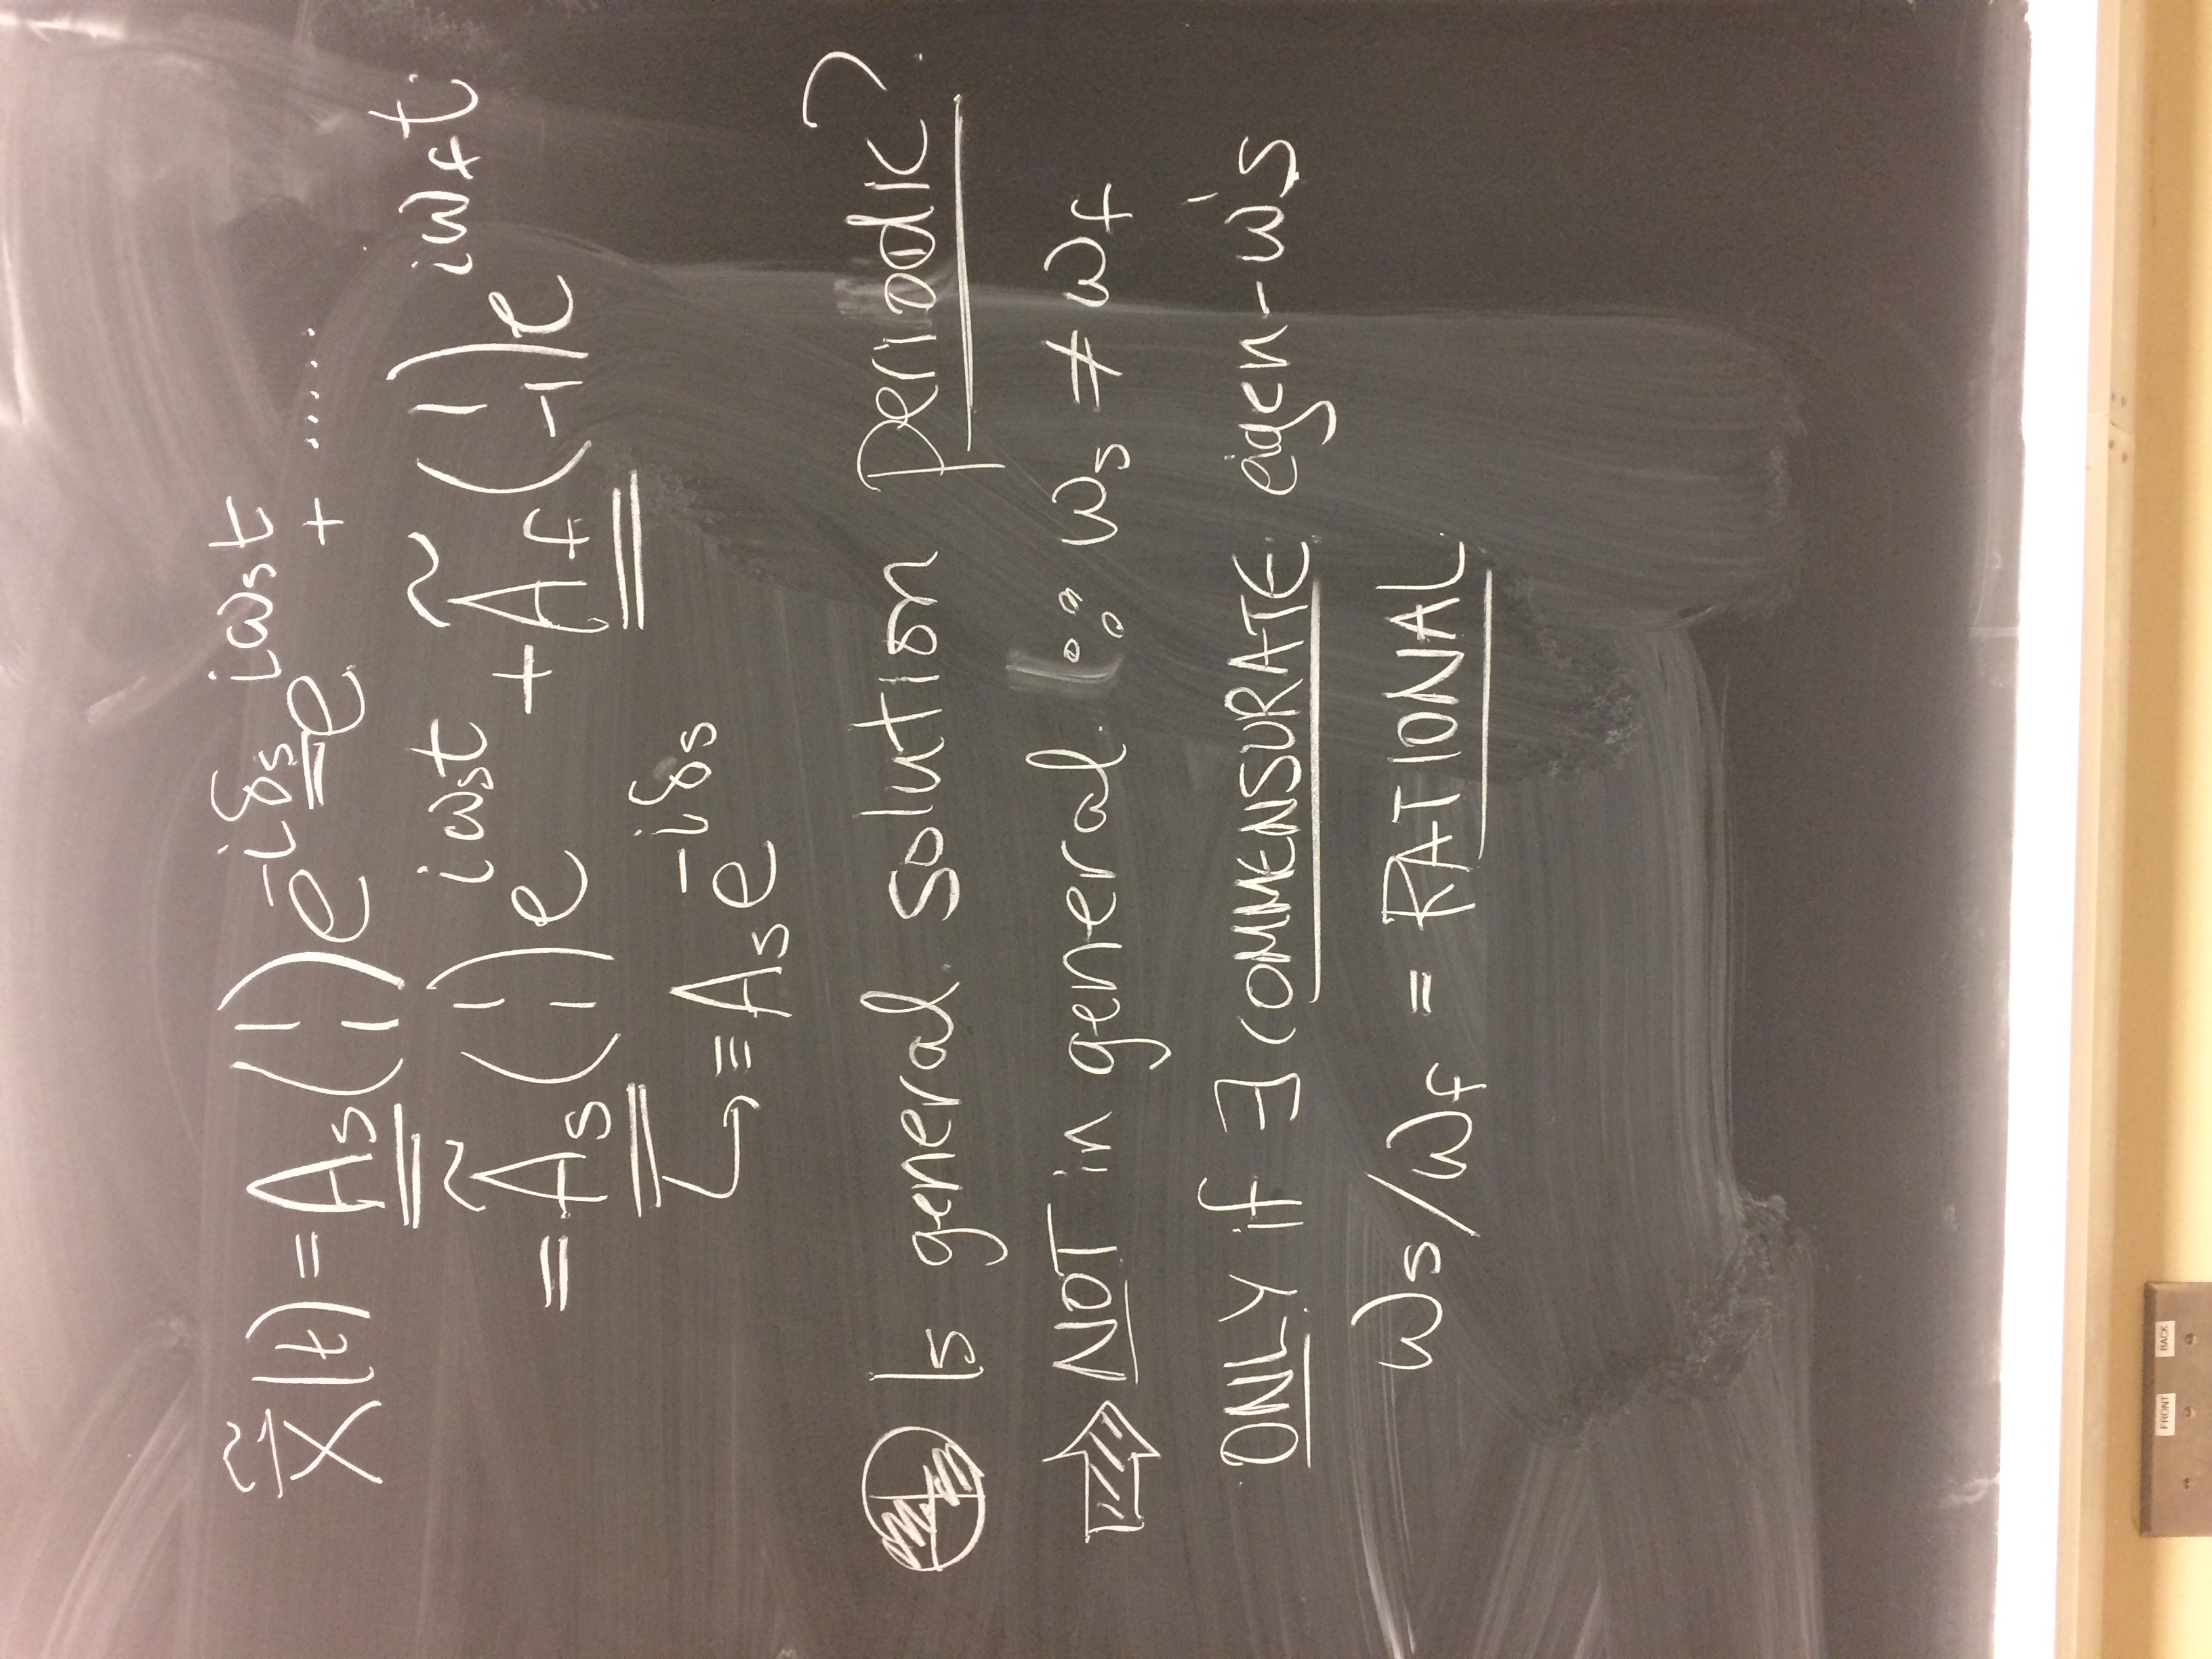 x̃⃗(t) = A_s (1 1) e^{-iδ_s} e^{iω_s t} + .....
= Ã_s (1 1) e^{iω_s t} + Ã_f (1 -1) e^{iω_f t}
↳ ≡ A_s e^{-iδ_s}
Is general solution periodic?
⇒ NOT in general ∵ ω_s ≠ ω_f
ONLY if ∃ COMMENSURATE eigen-ω's
ω_s/ω_f = RATIONAL
FRONT BACK